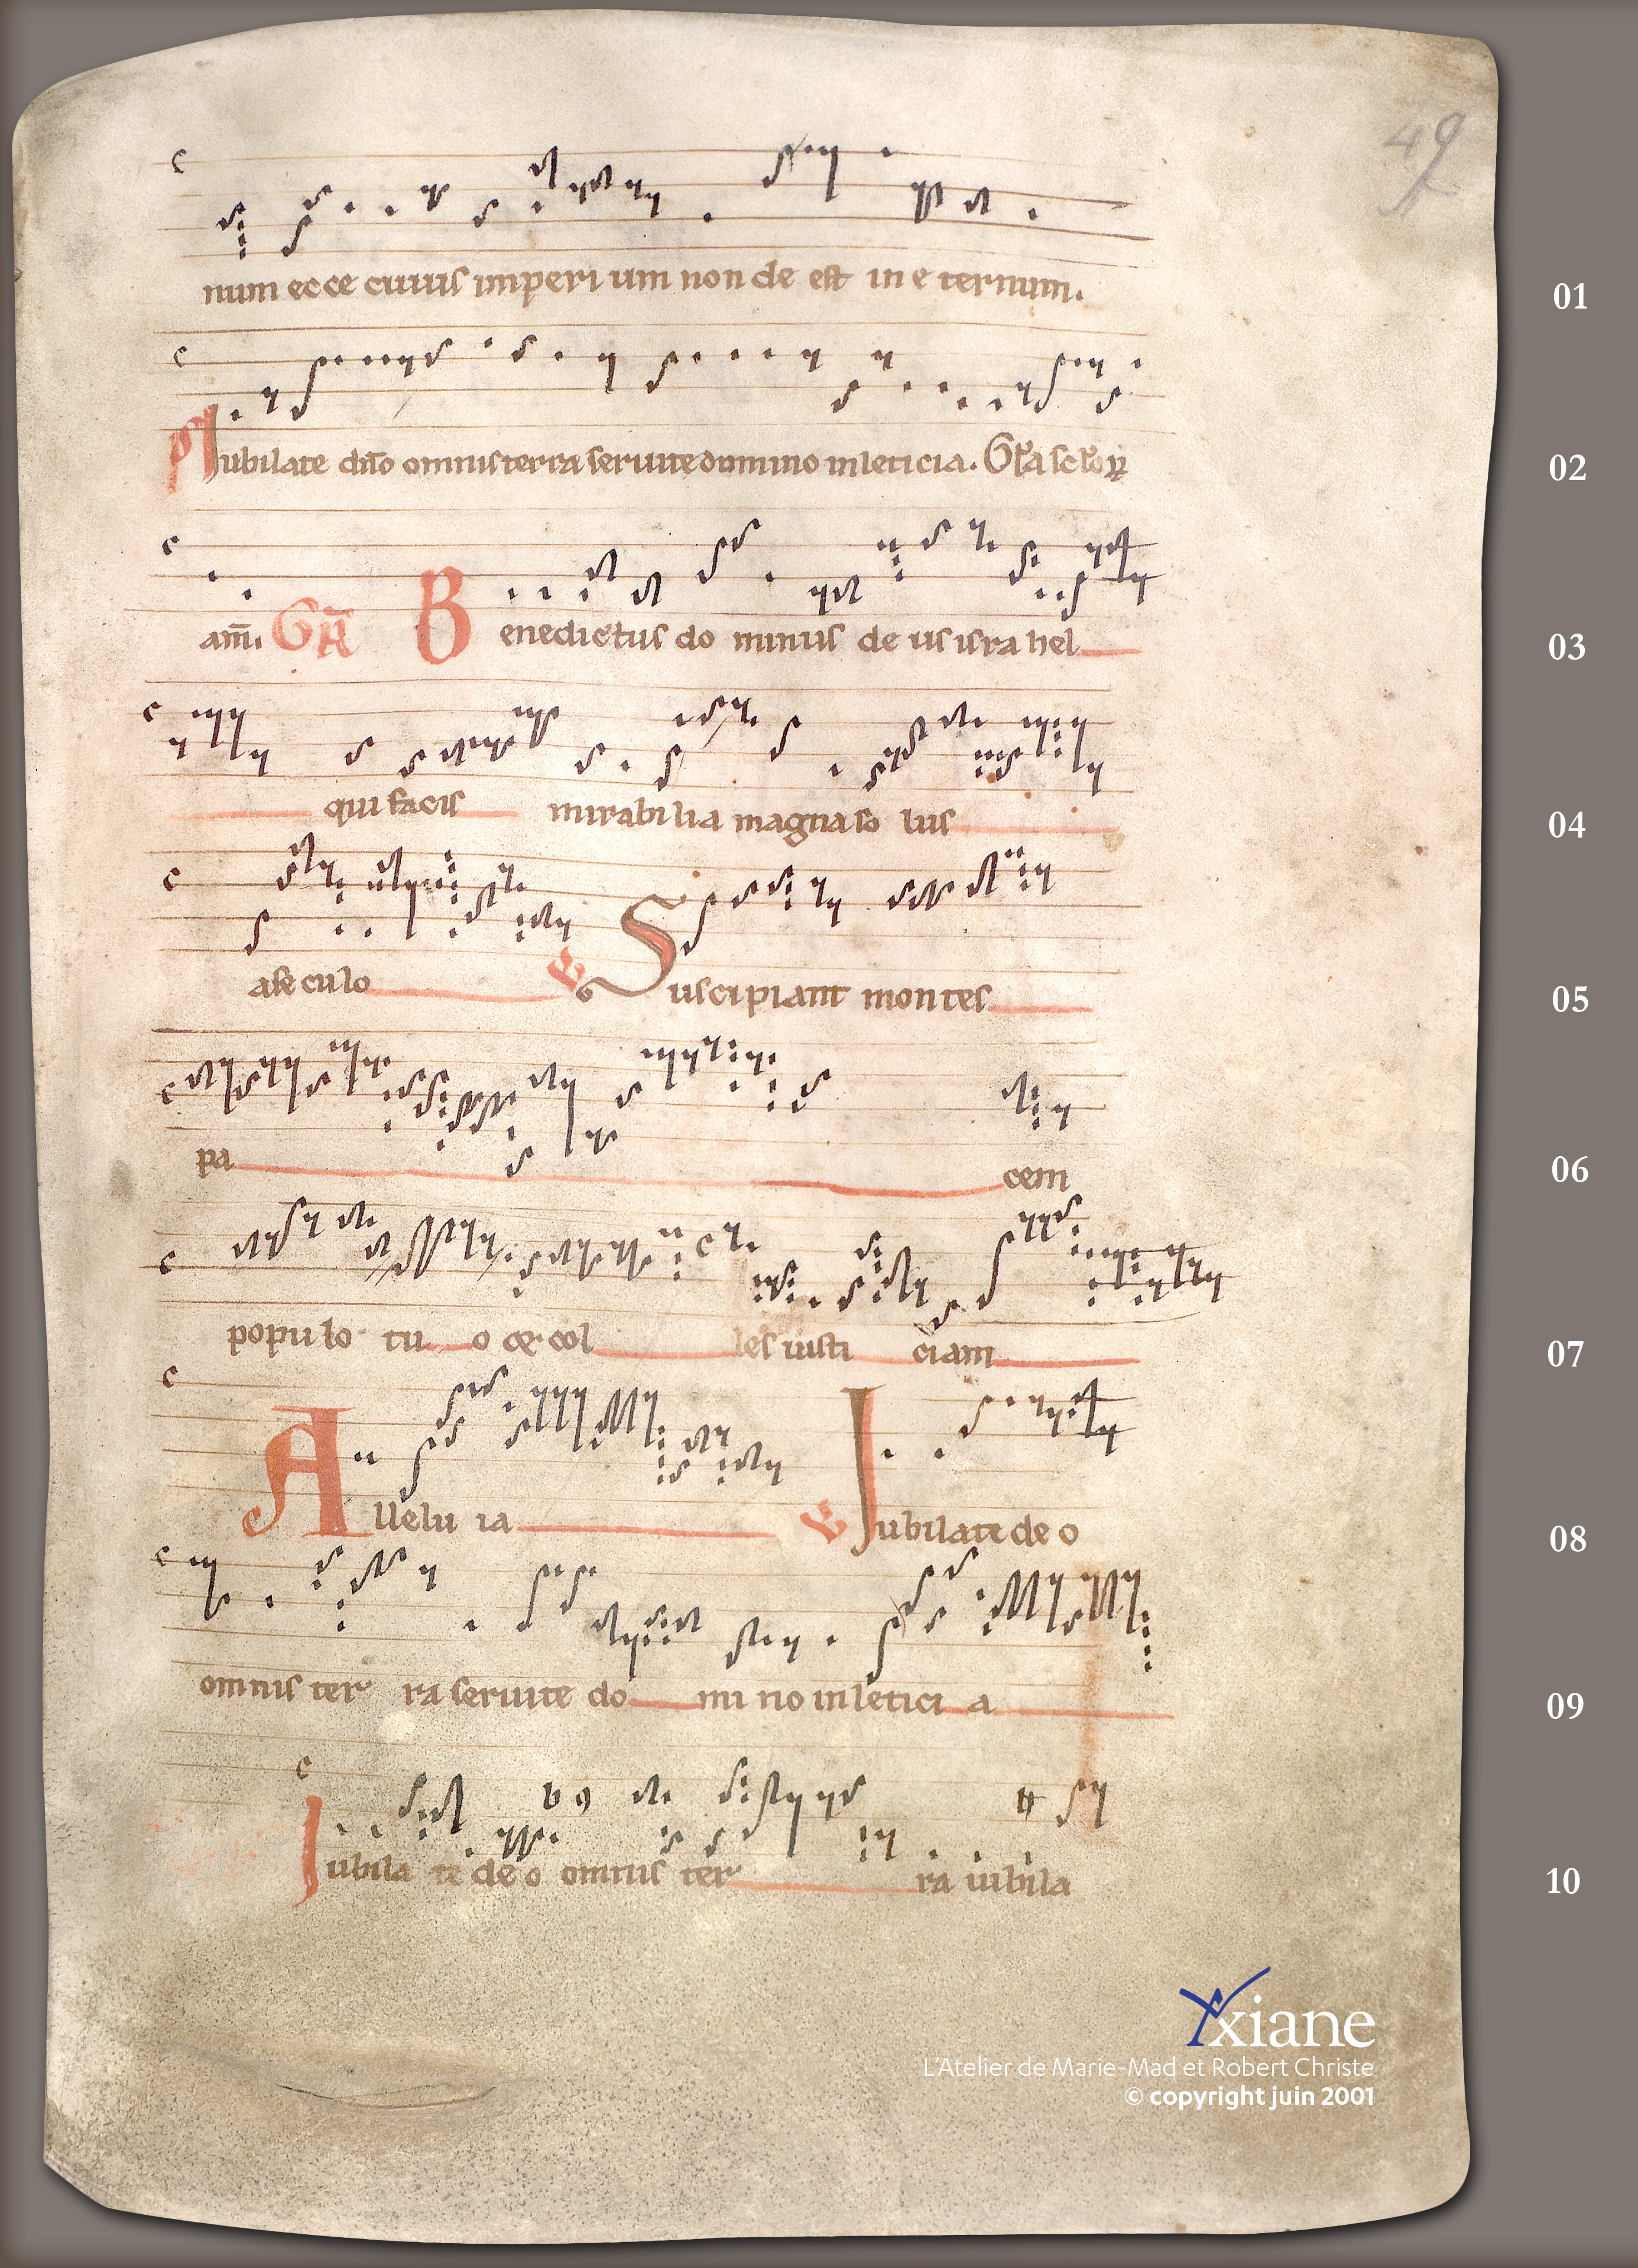 49
num ecce cuius imperi um non de est in e ternum. 01
Jubilate dño omnis terra seruite domino in leticia. Gľa sclorꝝ 02
am̄. GR̄ Benedictus do minus de us isra hel 03
qui facis mirabilia magna so lus 04
a se culo ℣ Suscipiant montes 05
pa cem 06
populo tu o & col les iusti ciam 07
Allelu ia ℣ Jubilate de o 08
omnis ter ra seruite do mi no in letici a 09
Jubila te de o omnis ter ra iubila 10
Yxiane
L'Atelier de Marie-Mad et Robert Christe
© copyright juin 2001